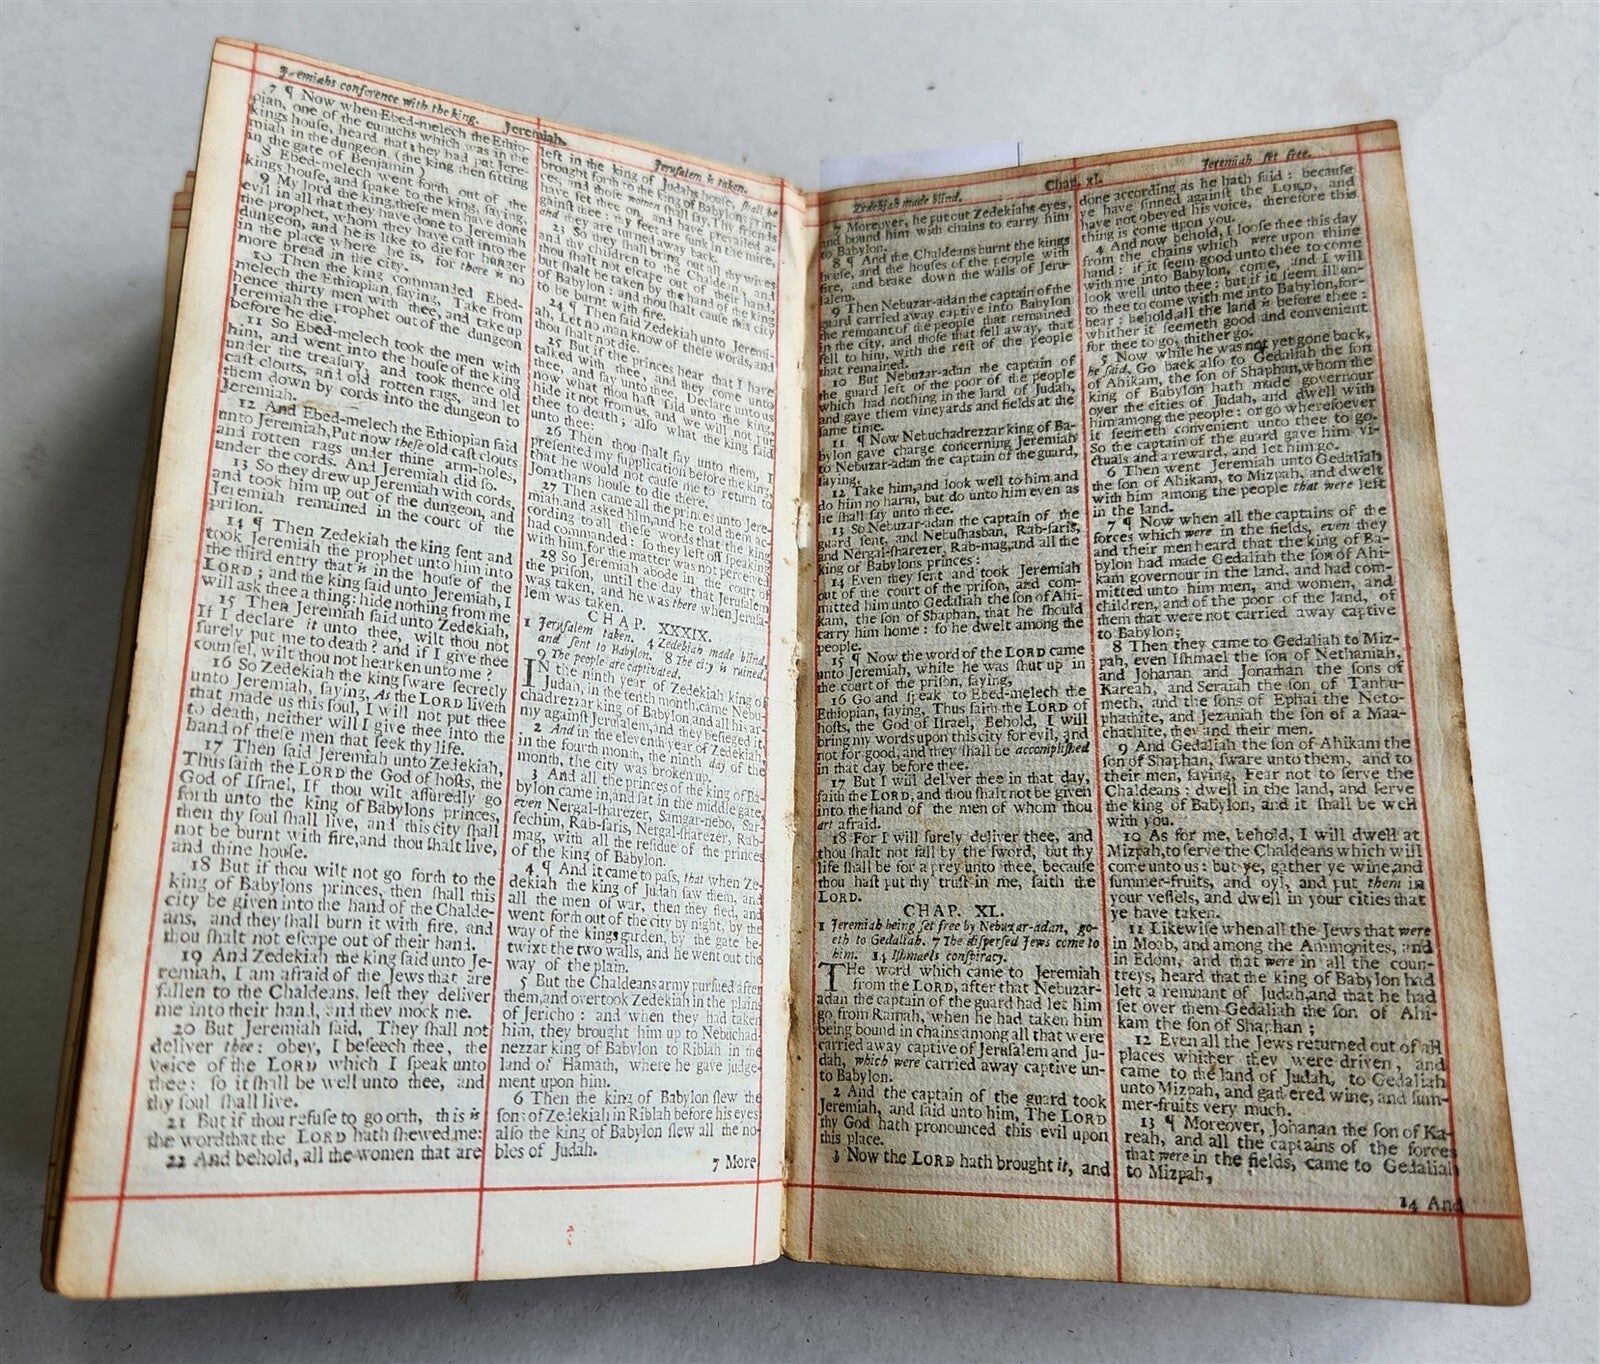 Jeremiahs conference with the king. Jeremiah. Jerusalem is taken.
7 ¶ Now when Ebed-melech the Ethio-
pian, one of the eunuchs which was in the
kings houſe, heard that they had put Jere-
miah in the dungeon (the king then ſitting
in the gate of Benjamin)
8 Ebed-melech went forth out of the
kings houſe, and ſpake to the king, ſaying,
9 My lord the king, theſe men have done
evil in all that they have done to Jeremiah
the prophet, whom they have caſt into the
dungeon, and he is like to die for hunger
in the place where he is, for there is no
more bread in the city.
10 Then the king commanded Ebed-
melech the Ethiopian, ſaying, Take from
hence thirty men with thee, and take up
Jeremiah the prophet out of the dungeon
before he die.
11 So Ebed-melech took the men with
him, and went into the houſe of the king
under the treaſury, and took thence old
caſt clouts, and old rotten rags, and let
them down by cords into the dungeon to
Jeremiah.
12 And Ebed-melech the Ethiopian ſaid
unto Jeremiah, Put now theſe old caſt clouts
and rotten rags under thine arm-holes,
under the cords. And Jeremiah did ſo.
13 So they drew up Jeremiah with cords,
and took him up out of the dungeon, and
Jeremiah remained in the court of the
priſon.
14 ¶ Then Zedekiah the king ſent and
took Jeremiah the prophet unto him into
the third entry that is in the houſe of the
LORD; and the king ſaid unto Jeremiah, I
will ask thee a thing: hide nothing from me
15 Then Jeremiah ſaid unto Zedekiah,
If I declare it unto thee, wilt thou not
ſurely put me to death? and if I give thee
counſel, wilt thou not hearken unto me?
16 So Zedekiah the king ſware ſecretly
unto Jeremiah, ſaying, As the LORD liveth
that made us this ſoul, I will not put thee
to death, neither will I give thee into the
hand of theſe men that ſeek thy life.
17 Then ſaid Jeremiah unto Zedekiah,
Thus ſaith the LORD the God of hoſts, the
God of Iſrael, If thou wilt aſſuredly go
forth unto the king of Babylons princes,
then thy ſoul ſhall live, and this city ſhall
not be burnt with fire, and thou ſhalt live,
and thine houſe.
18 But if thou wilt not go forth to the
king of Babylons princes, then ſhall this
city be given into the hand of the Chalde-
ans, and they ſhall burn it with fire, and
thou ſhalt not eſcape out of their hand.
19 And Zedekiah the king ſaid unto Je-
remiah, I am afraid of the Jews that are
fallen to the Chaldeans, leſt they deliver
me into their hand, and they mock me.
20 But Jeremiah ſaid, They ſhall not
deliver thee: obey, I beſeech thee, the
voice of the LORD which I ſpeak unto
thee: ſo it ſhall be well unto thee, and
thy ſoul ſhall live.
21 But if thou refuſe to go orth, this is
the word that the LORD hath ſhewed me:
22 And behold, all the women that are
left in the king of Judahs houſe, ſhall be
brought forth to the king of Babylons prin-
ces, and thoſe women ſhall ſay, Thy friends
have ſet thee on, and have prevailed a-
gainſt thee: thy feet are ſunk in the mire,
and they are turned away back.
23 So they ſhall bring out all thy wives
and thy children to the Chaldeans, and
thou ſhalt not eſcape out of their hand,
but ſhalt be taken by the hand of the king
of Babylon: and thou ſhalt cauſe this city
to be burnt with fire.
24 ¶ Then ſaid Zedekiah unto Jeremi-
ah, Let no man know of theſe words, and
thou ſhalt not die.
25 But if the princes hear that I have
talked with thee, and they come unto
thee, and ſay unto thee, Declare unto us
now what thou haſt ſaid unto the king,
hide it not from us, and we will not put
thee to death; alſo what the king ſaid
unto thee:
26 Then thou ſhalt ſay unto them, I
preſented my ſupplication before the king,
that he would not cauſe me to return to
Jonathans houſe to die there.
27 Then came all the princes unto Jere-
miah, and asked him, and he told them ac-
cording to all theſe words that the king
had commanded: ſo they left off ſpeaking
with him, for the matter was not perceived
28 So Jeremiah abode in the court of
the priſon, until the day that Jeruſalem
was taken, and he was there when Jeruſa-
lem was taken.
CHAP. XXXIX.
1 Jeruſalem taken. 4 Zedekiah made blind,
and ſent to Babylon. 8 The city is ruined.
9 The people are captivated.
IN the ninth year of Zedekiah king of
Judah, in the tenth month, came Nebu-
chadrezzar king of Babylon and all his ar-
my againſt Jeruſalem, and they beſieged it.
2 And in the eleventh year of Zedekiah,
in the fourth month, the ninth day of the
month, the city was broken up.
3 And all the princes of the king of Ba-
bylon came in, and ſat in the middle gate,
even Nergal-ſharezer, Samgar-nebo, Sar-
ſechim, Rab-ſaris, Nergal-ſharezer, Rab-
mag, with all the reſidue of the princes
of the king of Babylon.
4 ¶ And it came to paſs, that when Ze-
dekiah the king of Judah ſaw them, and
all the men of war, then they fled, and
went forth out of the city by night, by the
way of the kings garden, by the gate be-
twixt the two walls, and he went out the
way of the plain.
5 But the Chaldeans army purſued after
them, and overtook Zedekiah in the plains
of Jericho: and when they had taken
him, they brought him up to Nebuchad-
nezzar king of Babylon to Riblah in the
land of Hamath, where he gave judge-
ment upon him.
6 Then the king of Babylon ſlew the
ſons of Zedekiah in Riblah before his eyes:
alſo the king of Babylon ſlew all the no-
bles of Judah.
7 More
Zedekiah made blind. Chap. xl. Jeremiah ſet free.
7 Moreover, he put out Zedekiahs eyes,
and bound him with chains to carry him
to Babylon.
8 ¶ And the Chaldeans burnt the kings
houſe, and the houſes of the people with
fire, and brake down the walls of Jeru-
ſalem.
9 Then Nebuzar-adan the captain of the
guard carried away captive into Babylon
the remnant of the people that remained
in the city, and thoſe that fell away, that
fell to him, with the reſt of the people
that remained.
10 But Nebuzar-adan the captain of
the guard left of the poor of the people
which had nothing in the land of Judah,
and gave them vineyards and fields at the
ſame time.
11 ¶ Now Nebuchadrezzar king of Ba-
bylon gave charge concerning Jeremiah
to Nebuzar-adan the captain of the guard,
ſaying,
12 Take him, and look well to him, and
do him no harm, but do unto him even as
he ſhall ſay unto thee.
13 So Nebuzar-adan the captain of the
guard ſent, and Nebuſhasban, Rab-ſaris,
and Nergal-ſharezer, Rab-mag, and all the
king of Babylons princes:
14 Even they ſent and took Jeremiah
out of the court of the priſon, and com-
mitted him unto Gedaliah the ſon of Ahi-
kam, the ſon of Shaphan, that he ſhould
carry him home: ſo he dwelt among the
people.
15 ¶ Now the word of the LORD came
unto Jeremiah, while he was ſhut up in
the court of the priſon, ſaying,
16 Go and ſpeak to Ebed-melech the
Ethiopian, ſaying, Thus ſaith the LORD of
hoſts, the God of Iſrael, Behold, I will
bring my words upon this city for evil, and
not for good, and they ſhall be accompliſhed
in that day before thee.
17 But I will deliver thee in that day,
ſaith the LORD, and thou ſhalt not be given
into the land of the men of whom thou
art afraid.
18 For I will ſurely deliver thee, and
thou ſhalt not fall by the ſword, but thy
life ſhall be for a prey unto thee, becauſe
thou haſt put thy truſt in me, ſaith the
LORD.
CHAP. XL.
1 Jeremiah being ſet free by Nebuzar-adan, go-
eth to Gedaliah. 7 The diſperſed Jews come to
him. 13 Iſhmaels conſpiracy.
THe word which came to Jeremiah
from the LORD, after that Nebuzar-
adan the captain of the guard had let him
go from Ramah, when he had taken him
being bound in chains among all that were
carried away captive of Jeruſalem and Ju-
dah, which were carried away captive un-
to Babylon.
2 And the captain of the guard took
Jeremiah, and ſaid unto him, The LORD
thy God hath pronounced this evil upon
this place.
3 Now the LORD hath brought it, and
done according as he hath ſaid: becauſe
ye have ſinned againſt the LORD, and
have not obeyed his voice, therefore this
thing is come upon you.
4 And now behold, I looſe thee this day
from the chains which were upon thine
hand: if it ſeem good unto thee to come
with me into Babylon, come, and I will
look well unto thee: but if it ſeem ill un-
to thee to come with me into Babylon, for-
bear: behold, all the land is before thee:
whither it ſeemeth good and convenient
for thee to go, thither go.
5 Now while he was not yet gone back,
he ſaid, Go back alſo to Gedaliah the ſon
of Ahikam, the ſon of Shaphan, whom the
king of Babylon hath made governour
over the cities of Judah, and dwell with
him among the people: or go whereſoever
it ſeemeth convenient unto thee to go.
So the captain of the guard gave him vi-
ctuals and a reward, and let him go.
6 Then went Jeremiah unto Gedaliah
the ſon of Ahikam, to Mizpah, and dwelt
with him among the people that were left
in the land.
7 ¶ Now when all the captains of the
forces which were in the fields, even they
and their men heard that the king of Ba-
bylon had made Gedaliah the ſon of Ahi-
kam governour in the land, and had com-
mitted unto him men, and women, and
children, and of the poor of the land, of
them that were not carried away captive
to Babylon;
8 Then they came to Gedaliah to Miz-
pah, even Iſhmael the ſon of Nethaniah,
and Johanan and Jonathan the ſons of
Kareah, and Seraiah the ſon of Tanhu-
meth, and the ſons of Ephai the Neto-
phathite, and Jezaniah the ſon of a Maa-
chathite, they and their men.
9 And Gedaliah the ſon of Ahikam the
ſon of Shaphan, ſware unto them, and to
their men, ſaying, Fear not to ſerve the
Chaldeans: dwell in the land, and ſerve
the king of Babylon, and it ſhall be well
with you.
10 As for me, behold, I will dwell at
Mizpah, to ſerve the Chaldeans which will
come unto us: but ye, gather ye wine, and
ſummer-fruits, and oyl, and put them in
your veſſels, and dwell in your cities that
ye have taken.
11 Likewiſe when all the Jews that were
in Moab, and among the Ammonites, and
in Edom, and that were in all the coun-
treys, heard that the king of Babylon had
left a remnant of Judah, and that he had
ſet over them Gedaliah the ſon of Ahi-
kam the ſon of Shaphan;
12 Even all the Jews returned out of all
places whither they were driven, and
came to the land of Judah, to Gedaliah
unto Mizpah, and gathered wine, and ſum-
mer-fruits very much.
13 ¶ Moreover, Johanan the ſon of Ka-
reah, and all the captains of the forces
that were in the fields, came to Gedaliah
to Mizpah,
14 And